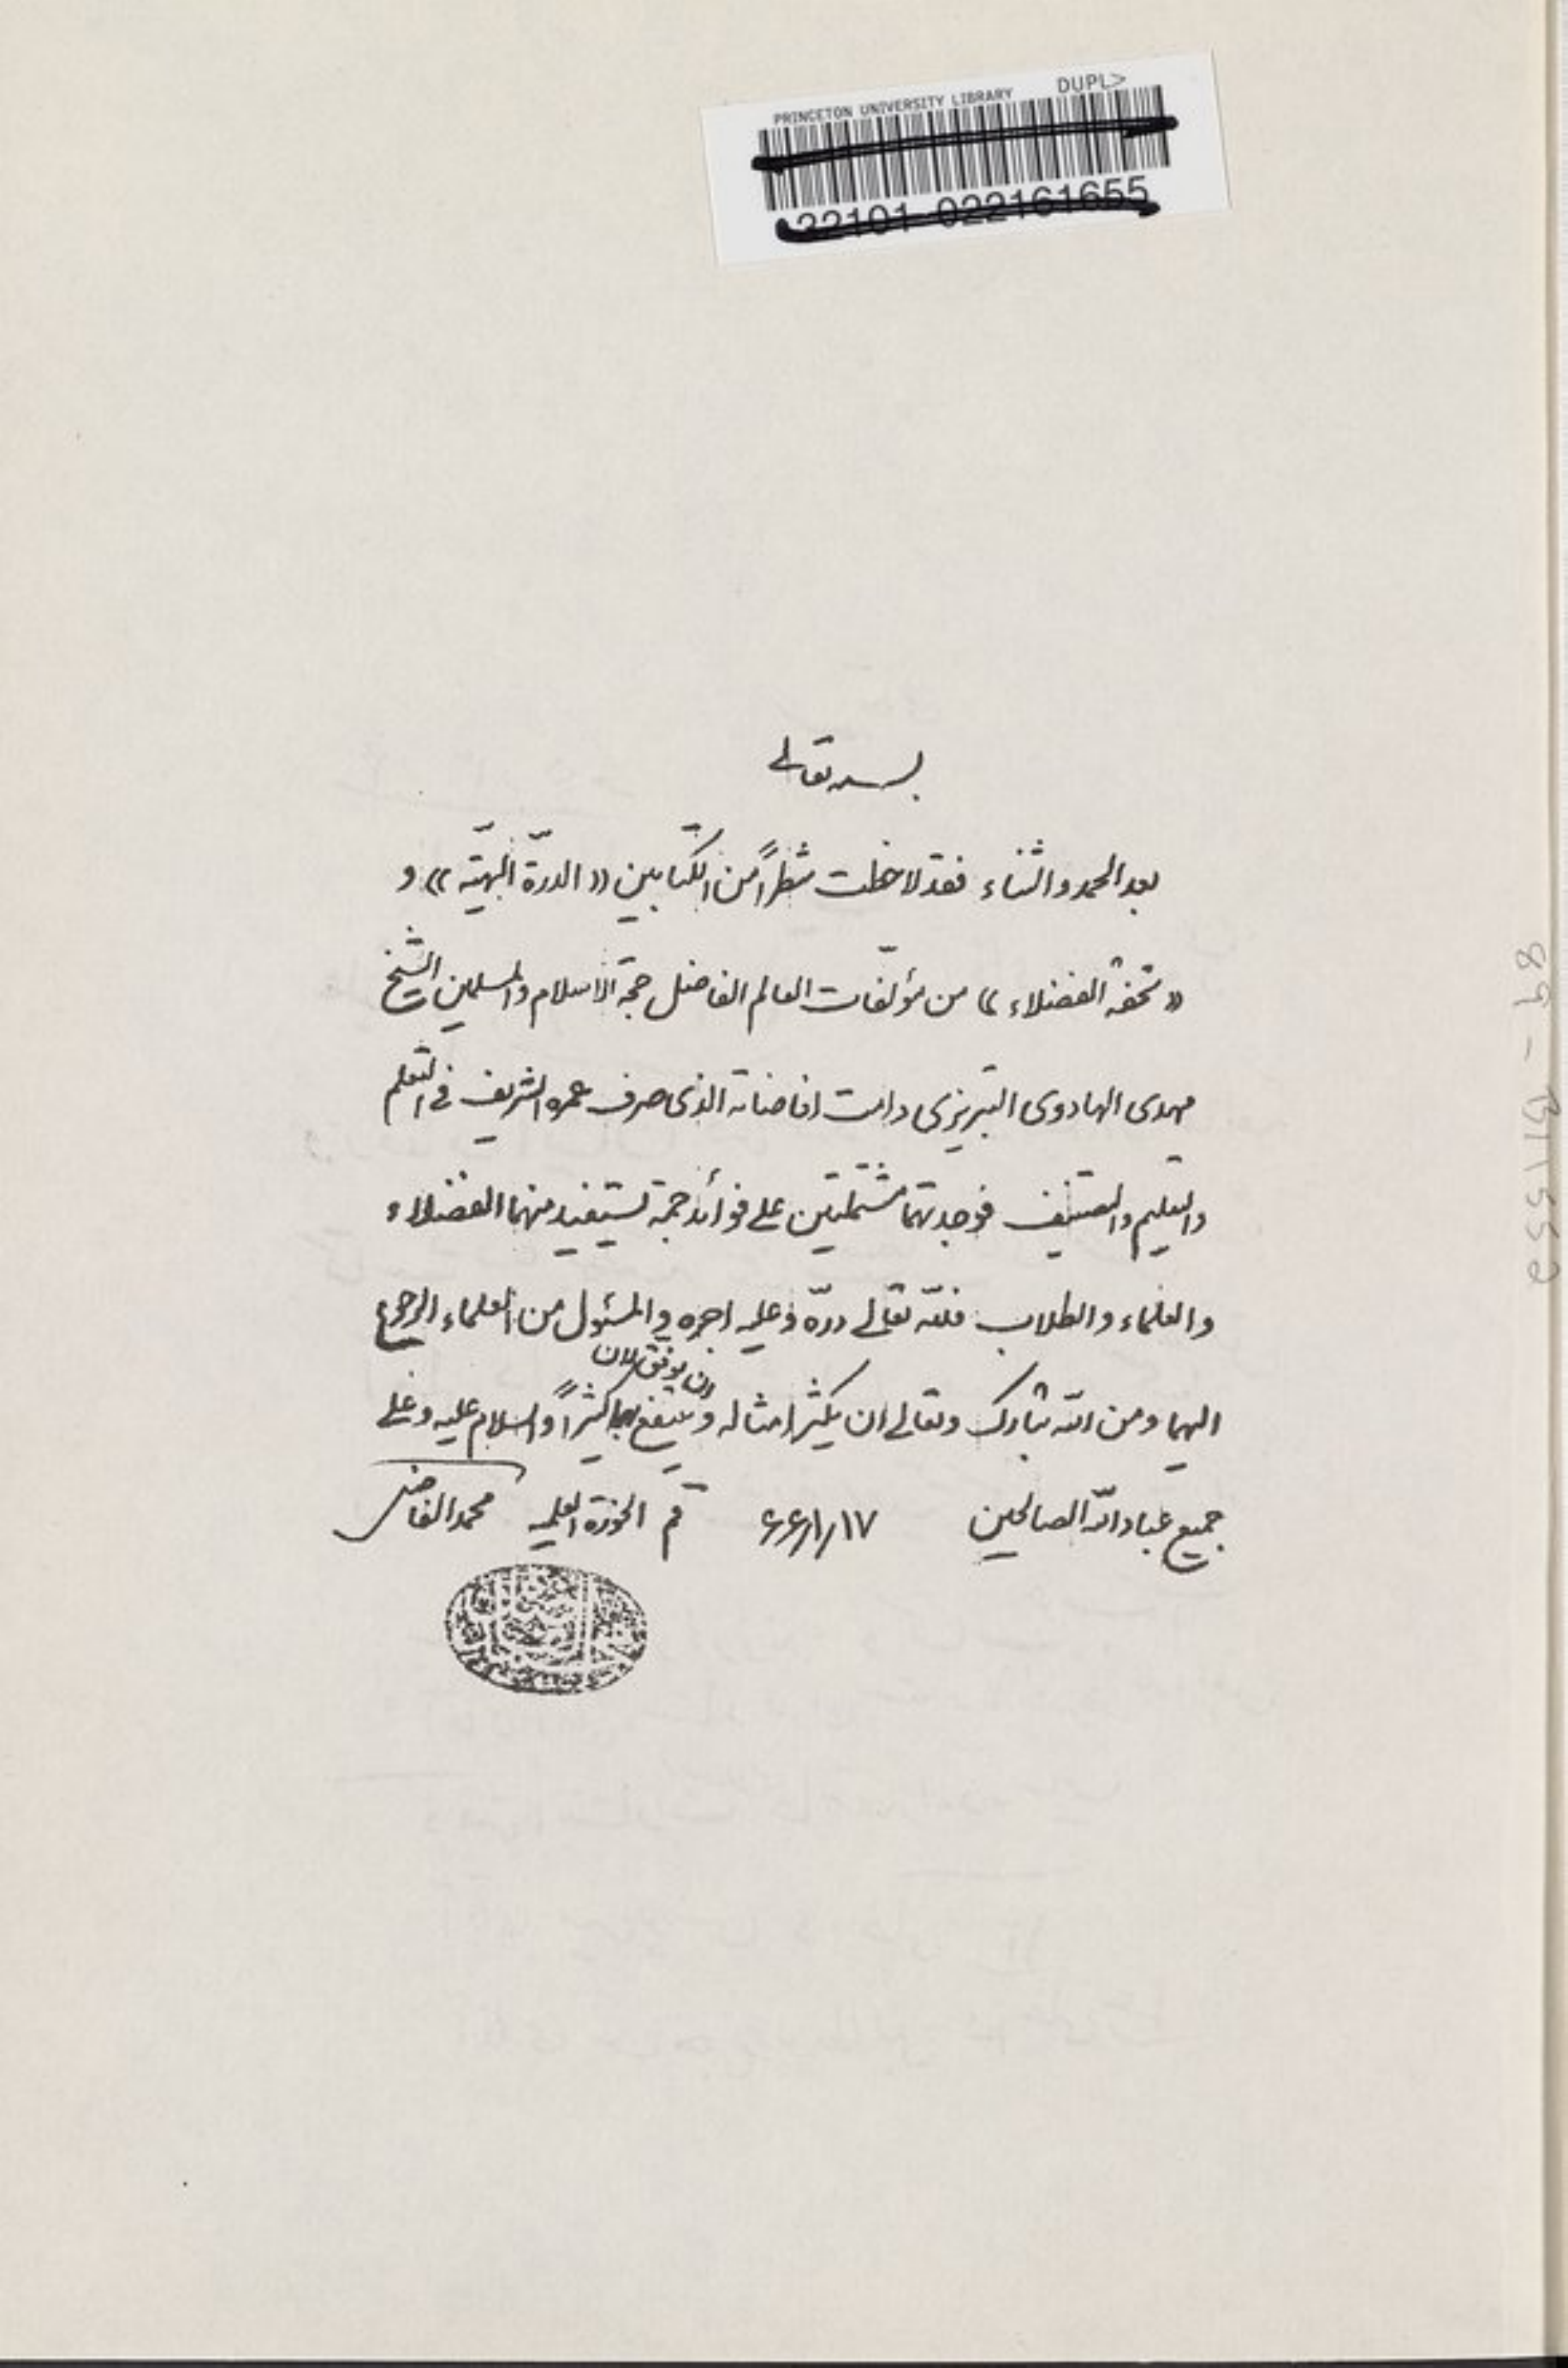 PRINCETON UNIVERSITY LIBRARY DUPL>
32101 022161655
بسمه تعالى
بعد الحمد والثناء فقد لاحظت شطراً من الكتابين «الدرّة البهيّة» و
«تحفة الفضلاء» من مؤلّفات العالم الفاضل حجة الاسلام والمسلمين الشيخ
مهدى الهادوى التبريزى دامت افاضاته الذى صرف عمره الشريف فى التعلم
والتعليم والتصنيف فوجدتهما مشتملتين على فوائد جمة تستفيد منهما الفضلاء
والعلماء والطلاب فللّه تعالى درّه وعليه اجره والمسئول من العلماء الرجوع
اليهما ومن اللّه تبارك وتعالى ان يكثر امثاله وان يوفق لان ينتفع بهما كثيراً والسلام عليه وعلى
جميع عباد اللّه الصالحين ٦٦/١/١٧ قم الحوزة العلمية محمد الفاضل